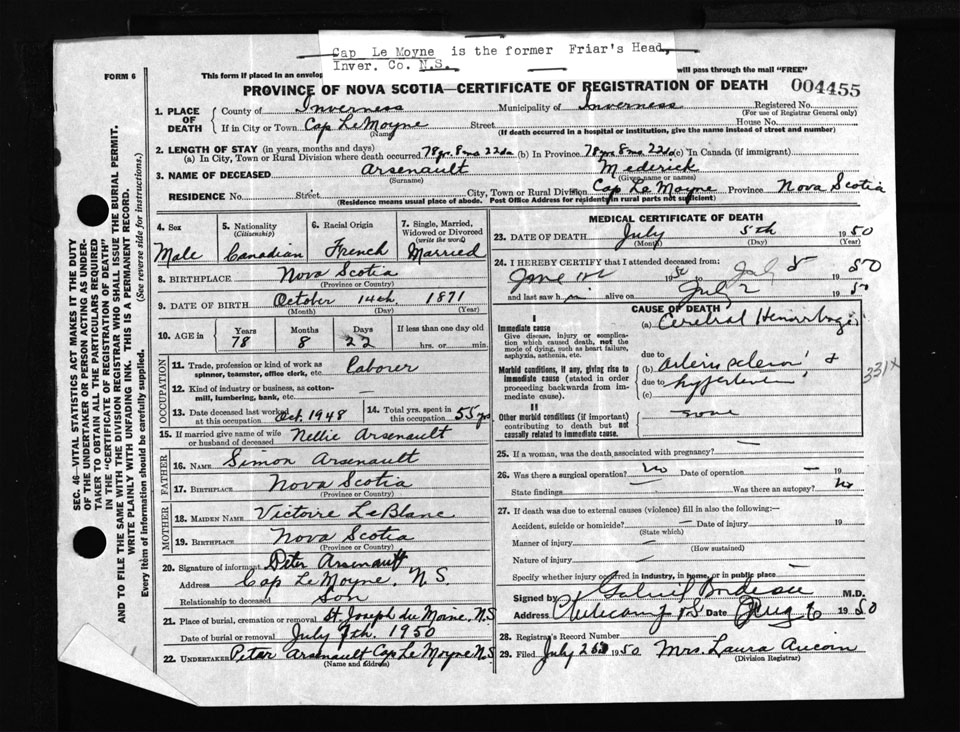 Cap Le Moyne is the former Friar's Head,
Inver. Co. N.S.
FORM 6
This form if placed in an envelop
will pass through the mail "FREE"
PROVINCE OF NOVA SCOTIA—CERTIFICATE OF REGISTRATION OF DEATH 004455
1. PLACE OF DEATH
County of Inverness Municipality of Inverness Registered No.
(For use of Registrar General only)
If in City or Town Cap Le Moyne Street House No.
(Name) (If death occurred in a hospital or institution, give the name instead of street and number)
2. LENGTH OF STAY (in years, months and days)
(a) In City, Town or Rural Division where death occurred 78 yrs 8 mo 22 da (b) In Province 78 yrs 8 mo 22 da (c) In Canada (if immigrant)
3. NAME OF DECEASED Arsenault Mederick
(Surname) (Given name or names)
RESIDENCE No. Street City, Town or Rural Division Cap Le Moyne Province Nova Scotia
(Residence means usual place of abode. Post Office Address for residents in rural parts not sufficient)
4. Sex Male
5. Nationality (Citizenship) Canadian
6. Racial Origin French
7. Single, Married, Widowed or Divorced (write the word) Married
8. BIRTHPLACE Nova Scotia
(Province or Country)
9. DATE OF BIRTH October 14th 1871
(Month) (Day) (Year)
10. AGE in Years 78 Months 8 Days 22 If less than one day old hrs. or min.
OCCUPATION
11. Trade, profession or kind of work as spinner, teamster, office clerk, etc. Laborer
12. Kind of industry or business, as cotton-mill, lumbering, bank, etc.
13. Date deceased last worked at this occupation Oct. 1948 14. Total yrs. spent in this occupation 55 yrs
15. If married give name of wife or husband of deceased Nellie Arsenault
FATHER
16. NAME Simon Arsenault
17. BIRTHPLACE Nova Scotia
(Province or Country)
MOTHER
18. MAIDEN NAME Victoire LeBlanc
19. BIRTHPLACE Nova Scotia
(Province or Country)
20. Signature of informant Peter Arsenault
Address Cap Le Moyne, N.S.
Relationship to deceased Son
21. Place of burial, cremation or removal St Joseph du Moine, N.S
Date of burial or removal July 7th. 1950
22. UNDERTAKER Peter Arsenault Cap Le Moyne N.S
(Name and address)
MEDICAL CERTIFICATE OF DEATH
23. DATE OF DEATH July 5th 1950
(Month) (Day) (Year)
24. I HEREBY CERTIFY that I attended deceased from:
June 1950 July 5 1950
and last saw him alive on July 2 1950
CAUSE OF DEATH
I
Immediate cause
Give disease, injury or complication which caused death, not the mode of dying, such as heart failure, asphyxia, asthenia, etc.
(a) Cerebral Hemorrhage
Morbid conditions, if any, giving rise to immediate cause (stated in order proceeding backwards from immediate cause).
due to
(b) arteriosclerosis &
due to hypertension
(c)
331x
II
Other morbid conditions (if important) contributing to death but not causally related to immediate cause.
none
25. If a woman, was the death associated with pregnancy? —
26. Was there a surgical operation? No Date of operation — 19
State findings Was there an autopsy? No
27. If death was due to external causes (violence) fill in also the following:—
Accident, suicide or homicide? — Date of injury 19
(State which)
Manner of injury —
(How sustained)
Nature of injury —
Specify whether injury occurred in industry, in home, or in public place —
Signed by M.D.
Address Cheticamp NS Date Aug 6 1950
28. Registrar's Record Number
29. Filed July 1950 Mrs. Laura Aucoin
(Division Registrar)
SEC. 46—VITAL STATISTICS ACT MAKES IT THE DUTY
OF THE UNDERTAKER OR PERSON ACTING AS UNDER-
TAKER TO OBTAIN ALL THE PARTICULARS REQUIRED
IN THE "CERTIFICATE OF REGISTRATION OF DEATH"
AND TO FILE THE SAME WITH THE DIVISION REGISTRAR WHO SHALL ISSUE THE BURIAL PERMIT.
WRITE PLAINLY WITH UNFADING INK. THIS IS A PERMANENT RECORD.
Every item of information should be carefully supplied. (See reverse side for instructions.)